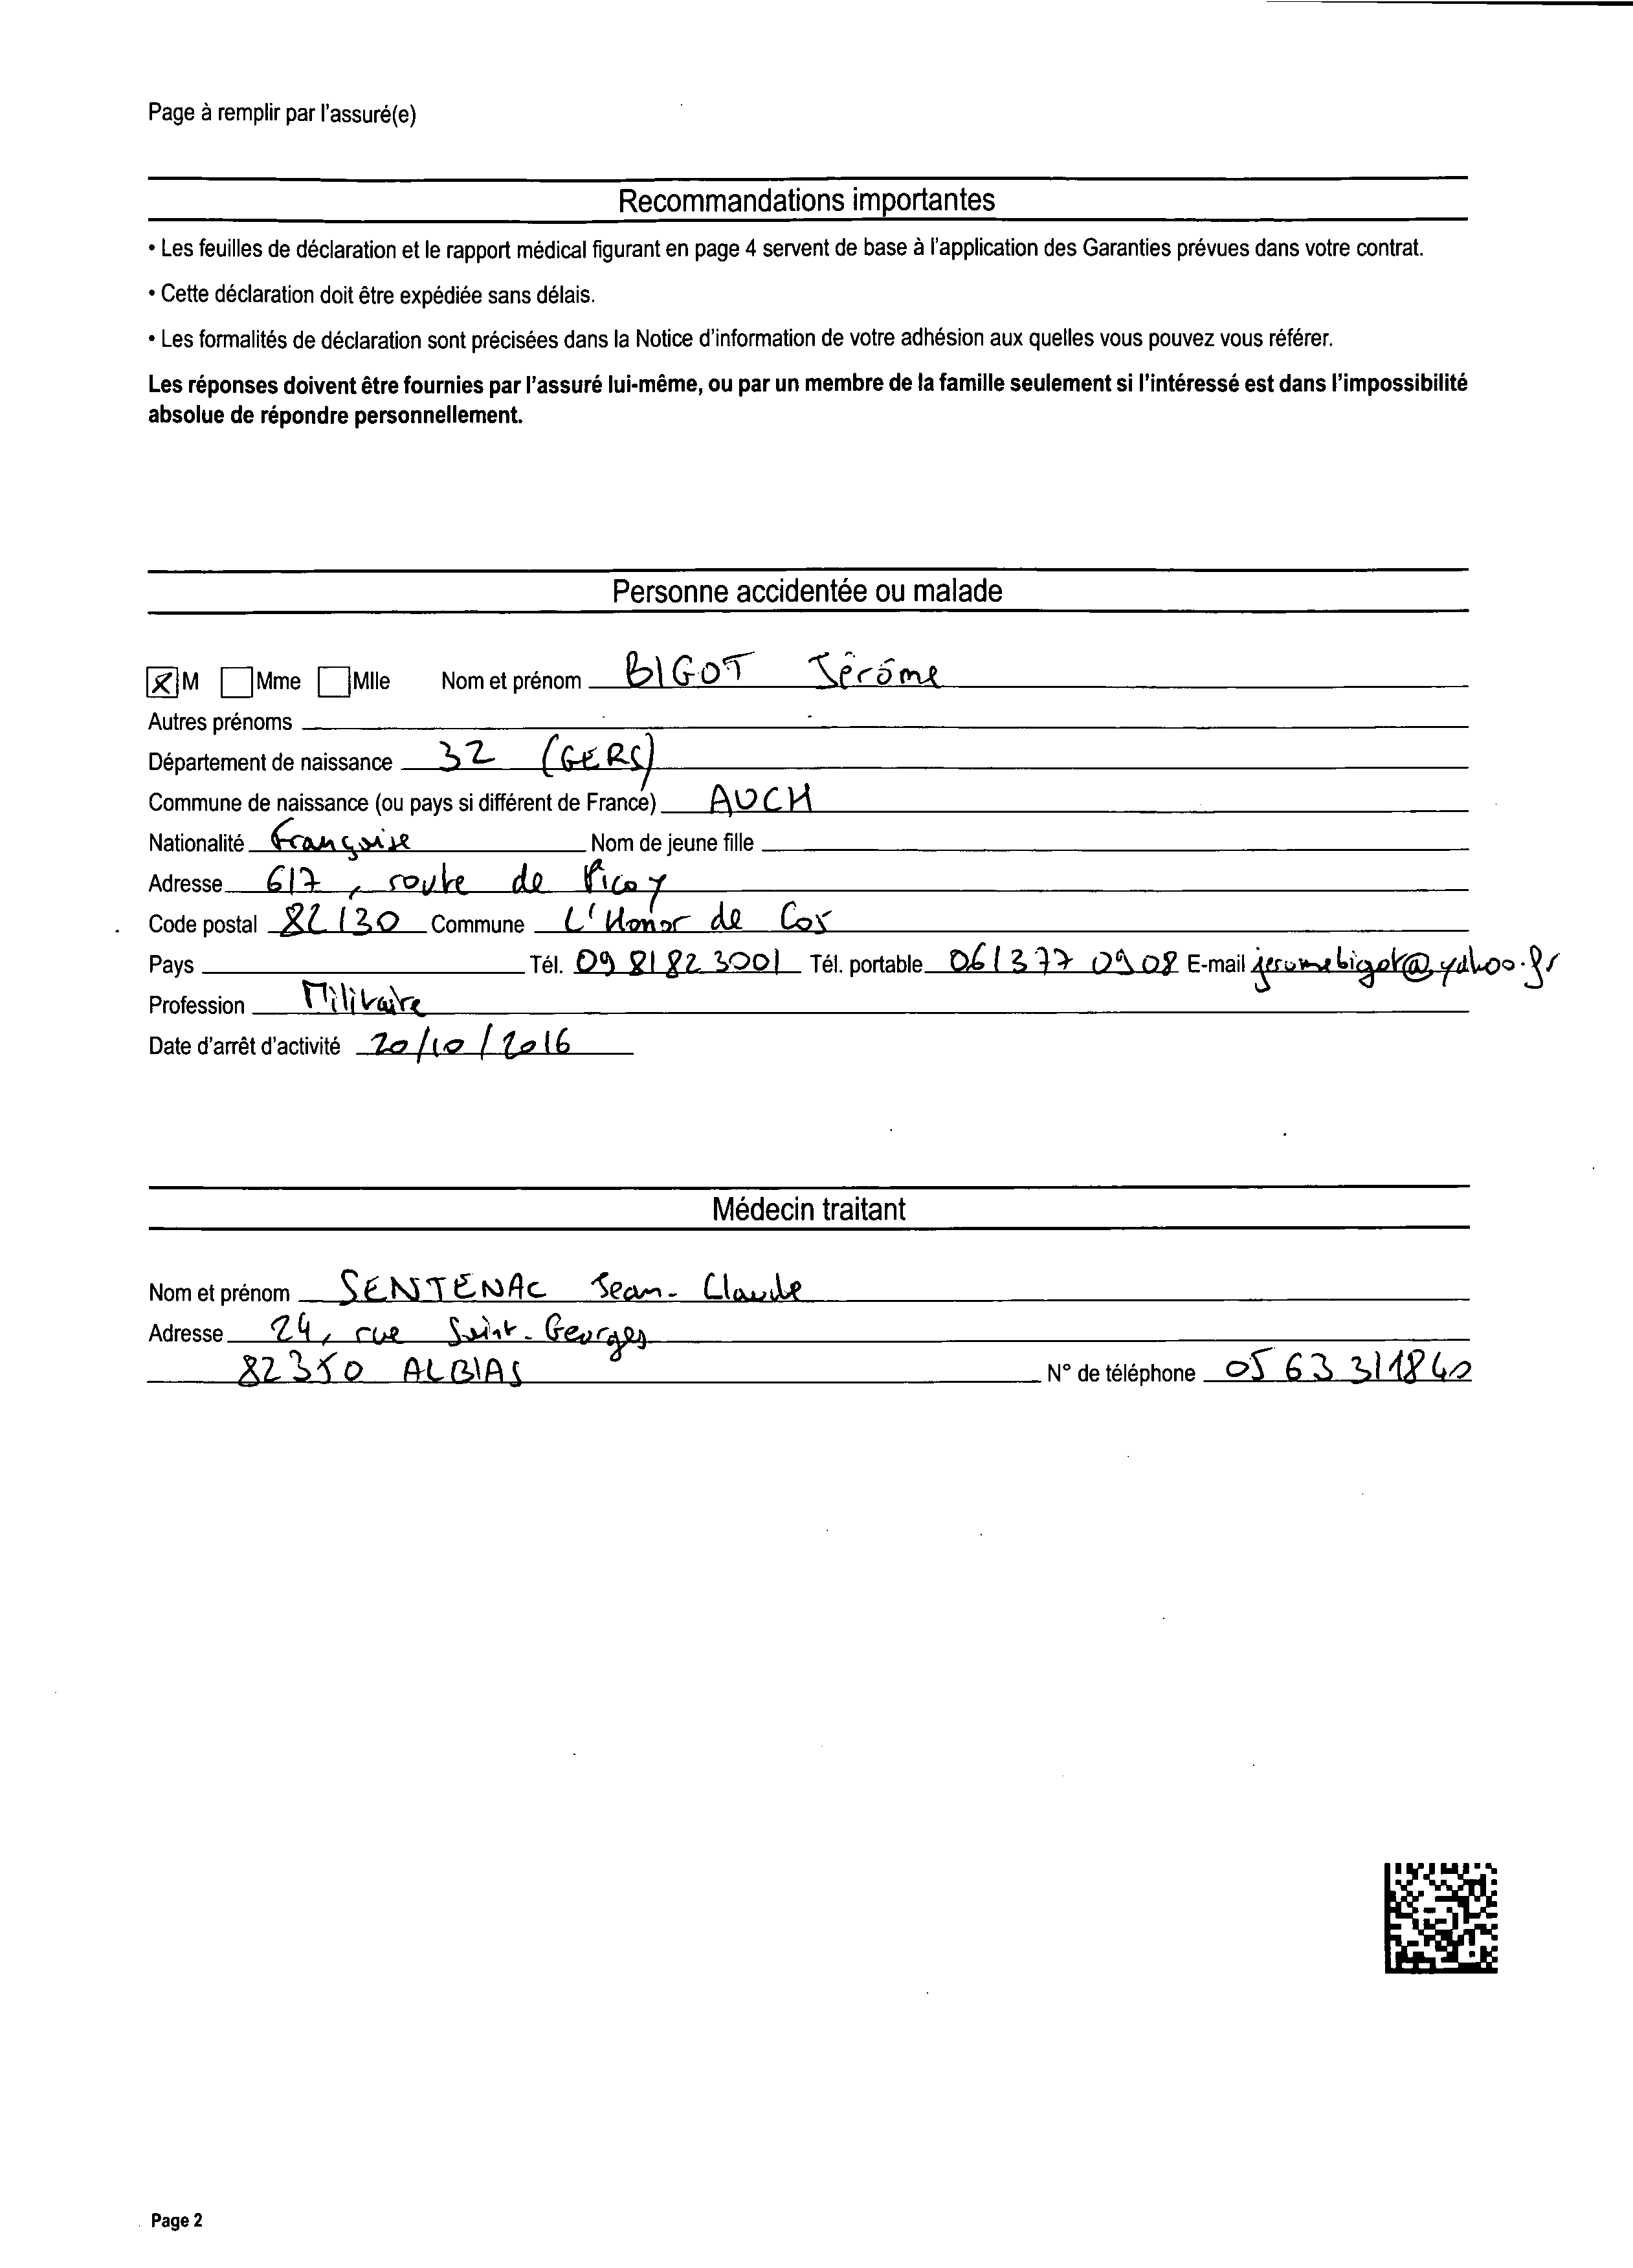 Page à remplir par l'assuré(e)
Recommandations importantes
• Les feuilles de déclaration et le rapport médical figurant en page 4 servent de base à l'application des Garanties prévues dans votre contrat.
• Cette déclaration doit être expédiée sans délais.
• Les formalités de déclaration sont précisées dans la Notice d'information de votre adhésion aux quelles vous pouvez vous référer.
Les réponses doivent être fournies par l'assuré lui-même, ou par un membre de la famille seulement si l'intéressé est dans l'impossibilité
absolue de répondre personnellement.
Personne accidentée ou malade
M Mme Mlle Nom et prénom BIGOT Jérôme
Autres prénoms
Département de naissance 32 (GERS)
Commune de naissance (ou pays si différent de France) AUCH
Nationalité Française Nom de jeune fille
Adresse 617, route de Picoy
Code postal 82130 Commune L'Honor de Cos
Pays Tél. 09 81 82 3001 Tél. portable 061377 0908 E-mail jeromebigot@yahoo.fr
Profession Militaire
Date d'arrêt d'activité 20/10/2016
Médecin traitant
Nom et prénom SENTENAC Jean-Claude
Adresse 24, rue Saint-Georges
82350 ALBIAS N° de téléphone 05 63 311840
Page 2